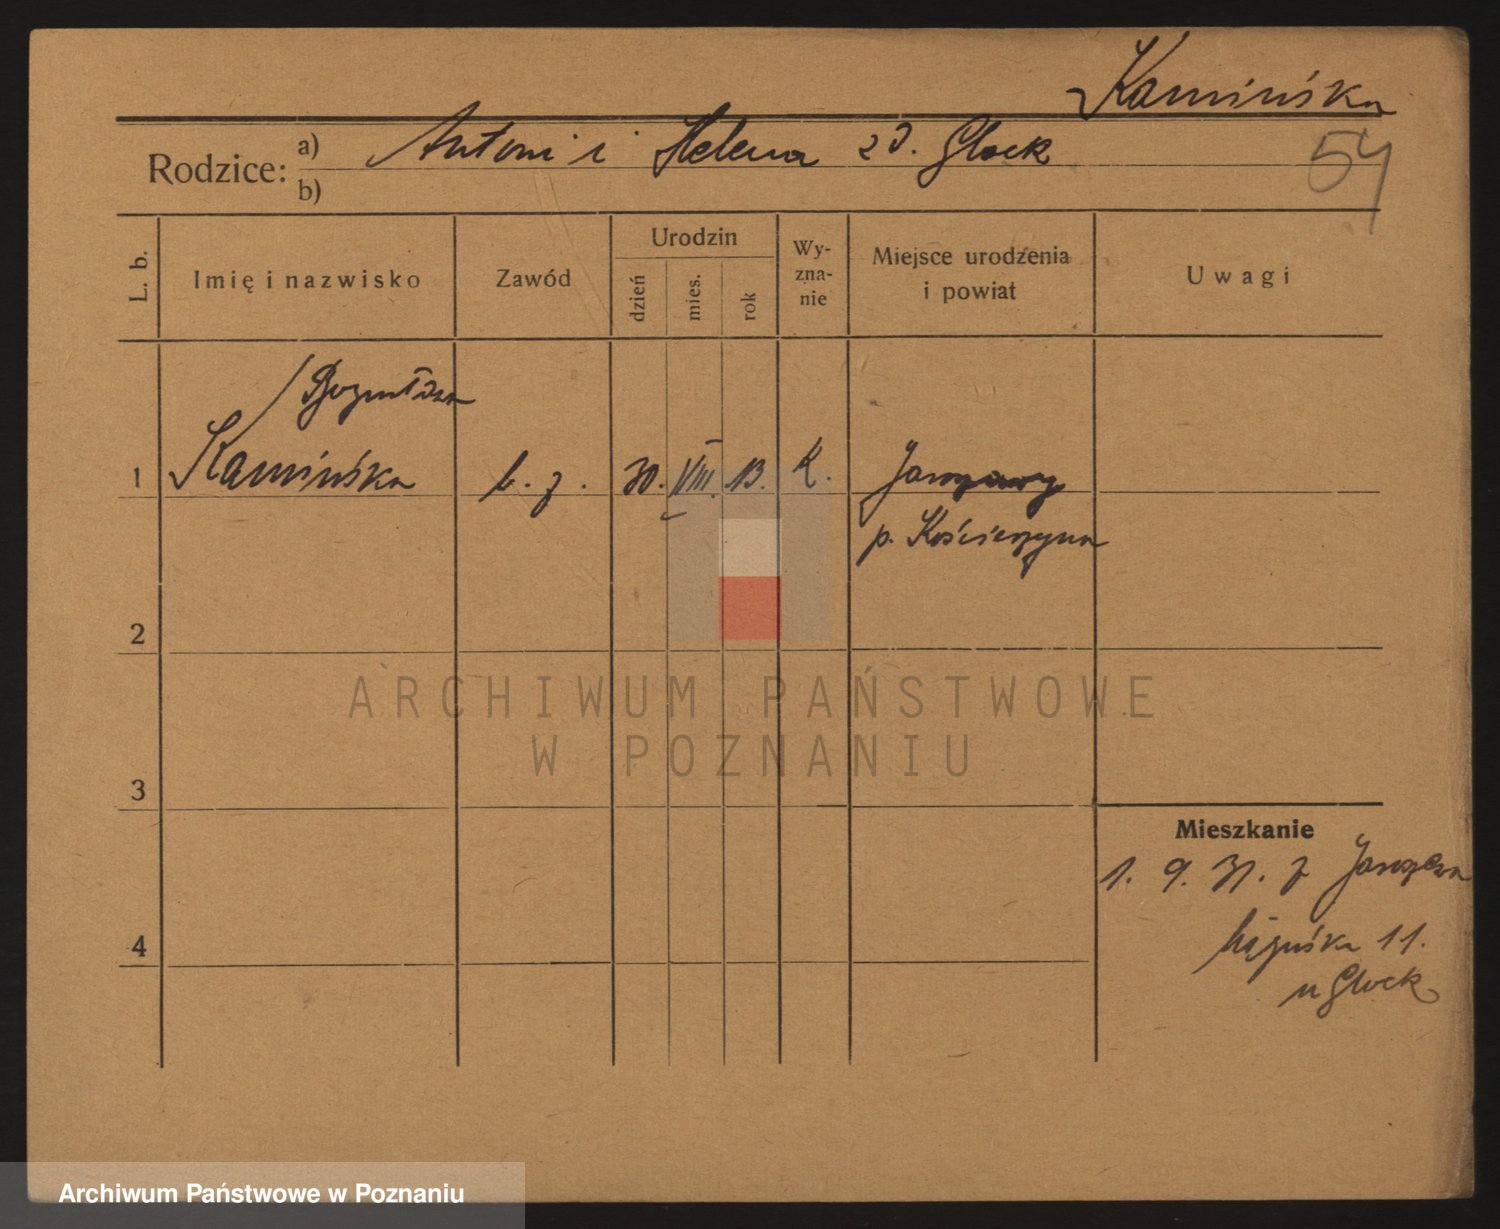 Kamińska
Rodzice: a) Antoni i Helena zd. Glock
b)
54
L. b.
Imię i nazwisko
Zawód
Urodzin
dzień
mies.
rok
Wy-
zna-
nie
Miejsce urodzenia
i powiat
Uwagi
1
Kamińska
b. z.
30. VIII. 13.
K.
p. Kościerzyna
2
3
4
Mieszkanie
1. 9. 31. z
11.
u Glock
ARCHIWUM PAŃSTWOWE
W POZNANIU
Archiwum Państwowe w Poznaniu